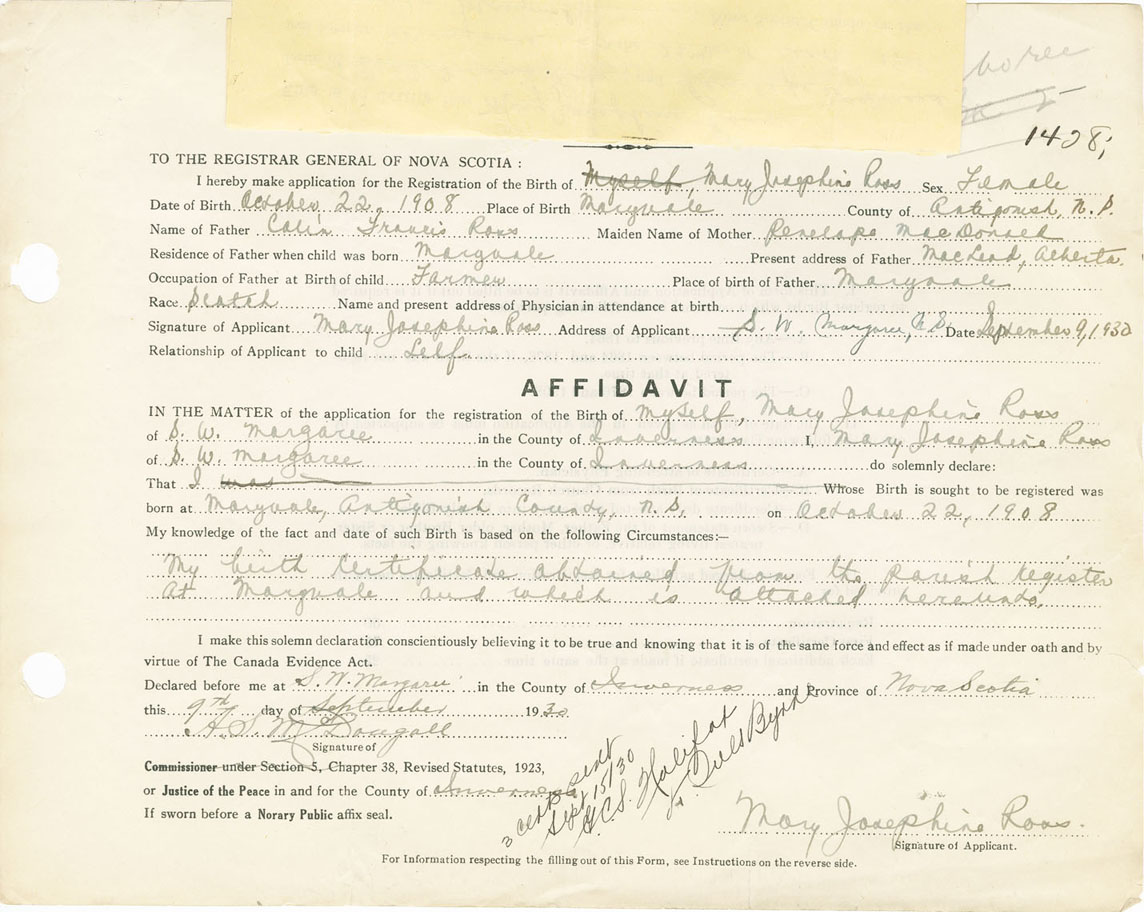 1428;
TO THE REGISTRAR GENERAL OF NOVA SCOTIA :
I hereby make application for the Registration of the Birth of Myself, Mary Josephine Ross Sex Female
Date of Birth October 22, 1908 Place of Birth Maryvale County of Antigonish, N. S.
Name of Father Colin Francis Ross Maiden Name of Mother Penelope MacDonald
Residence of Father when child was born Maryvale Present address of Father MacLeod, Alberta
Occupation of Father at Birth of child Farmer Place of birth of Father Maryvale
Race Scotch Name and present address of Physician in attendance at birth
Signature of Applicant Mary Josephine Ross Address of Applicant S. W. Margaree, N. S. Date September 9, 1930
Relationship of Applicant to child Self
AFFIDAVIT
IN THE MATTER of the application for the registration of the Birth of Myself, Mary Josephine Ross
of S. W. Margaree in the County of Inverness I, Mary Josephine Ross
of S. W. Margaree in the County of Inverness do solemnly declare:
That I was Whose Birth is sought to be registered was
born at Maryvale, Antigonish County, N. S. on October 22, 1908
My knowledge of the fact and date of such Birth is based on the following Circumstances:—
My birth certificate obtained from the parish register
at Maryvale and which is attached hereunto.
I make this solemn declaration conscientiously believing it to be true and knowing that it is of the same force and effect as if made under oath and by
virtue of The Canada Evidence Act.
Declared before me at S. W. Margaree in the County of Inverness and Province of Nova Scotia
this 9th day of September 1930
A. S. McDougall
Signature of
Commissioner under Section 5, Chapter 38, Revised Statutes, 1923,
or Justice of the Peace in and for the County of Inverness
If sworn before a Norary Public affix seal.
2 certs sent
Sept 15/30
G.C.S. Halifax
Byrne
Mary Josephine Ross.
Signature of Applicant.
For Information respecting the filling out of this Form, see Instructions on the reverse side.